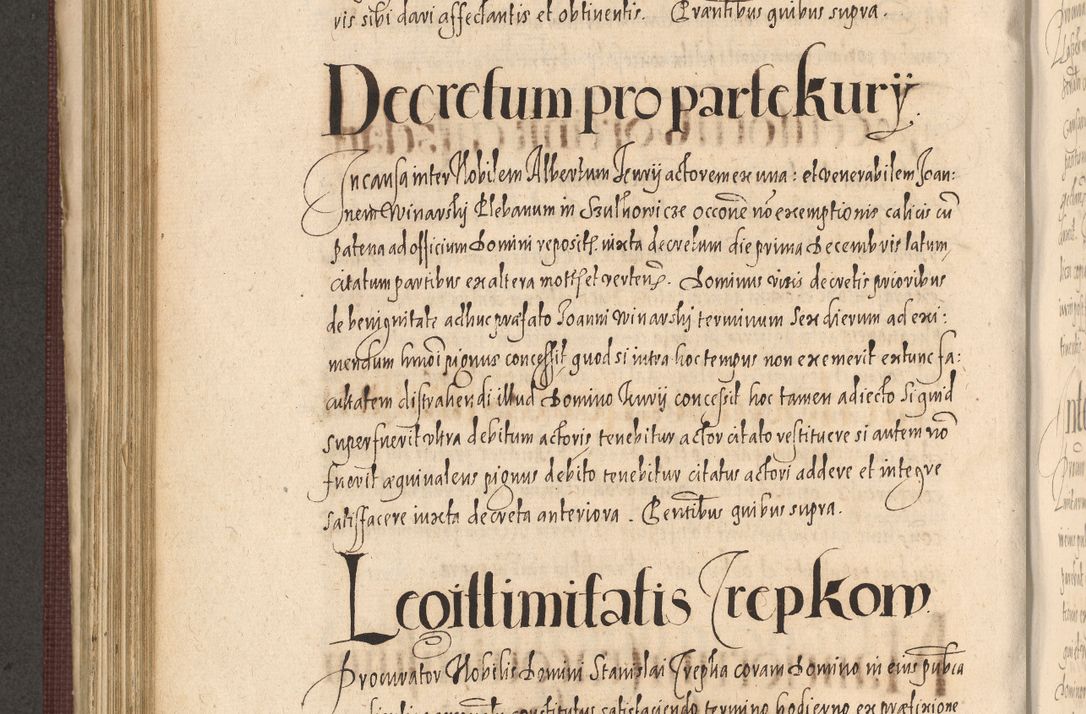 ris sibi dari affectantis et obtinentis. Praesentibus quibus supra.
Decretum pro parte kurÿ.
In causa inter Nobilem Albertum Kurÿ actorem ex una: et venerabilem Joan:
nem Winarskj Plebanum in Szulnowicze occone no exemptionis calicis cu
patena ad officium Domini reposit iuxta decretum die prima Decembris latum,
citatum partibus ex altera mot et verten. Dominus visis decretis prioribus
de benignitate adhuc praefato Joanni Winarskj terminum sex dierum ad exi:
mendum hmoi pignus concessit quod si intra hoc tempus non exemerit extunc fa:
cultatem distrahendi illud Domino Kurÿ concessit hoc tamen adiecto si quid
superfuerit ultra debitum actoris tenebitur actor citato restituere si autem no
fuerit aequivalens pignus debito tenebitur citatus actori addere et integre
satisfacere iuxta decreta anteriora. Pntibus quibus supra.
Legittimitatis Trepkow.
Procurator Nobilis Domini Stanislai Trepka coram Domino in eius pubca
constitutus satisfaciendo termino hodierno ex praefixione